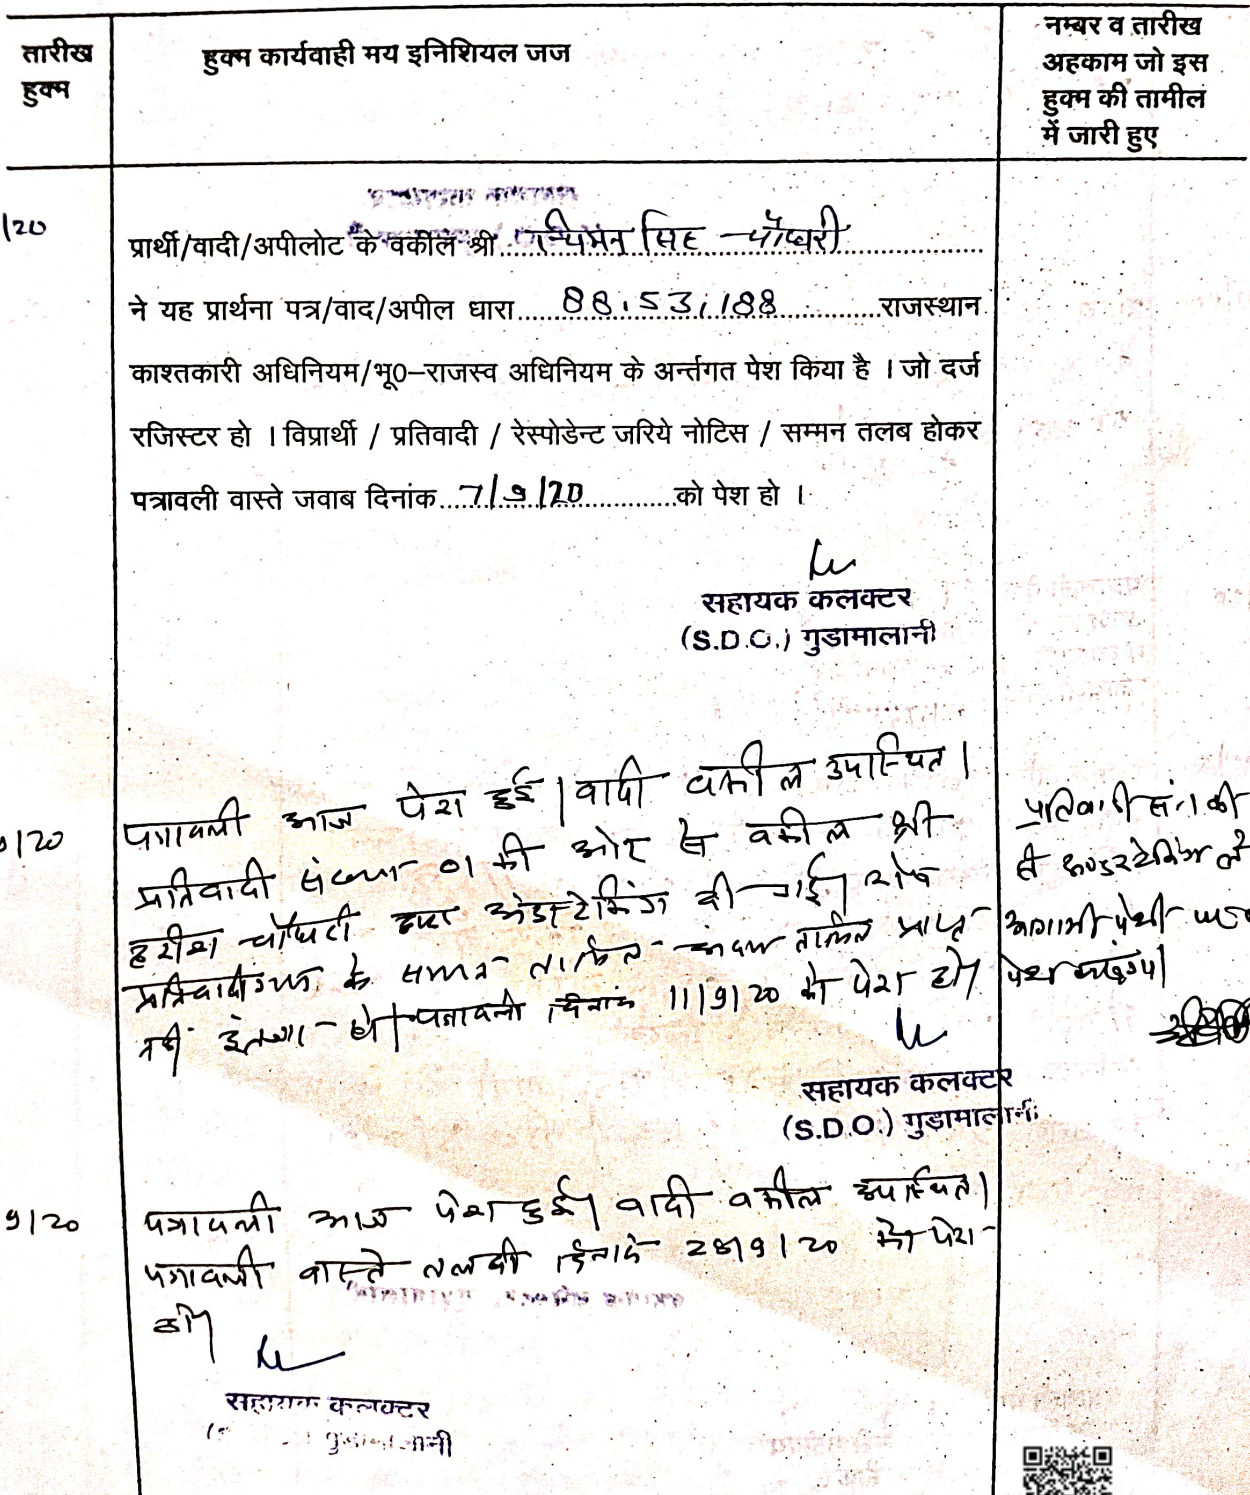 तारीख
हुक्म
हुक्म कार्यवाही मय इनिशियल जज
नम्बर व तारीख
अहकाम जो इस
हुक्म की तामील
में जारी हुए
/20
प्रार्थी/वादी/अपीलोट के वकील श्री सिंह चौधरी
ने यह प्रार्थना पत्र/वाद/अपील धारा 88,53,188 राजस्थान
काश्तकारी अधिनियम/भू0–राजस्व अधिनियम के अर्न्तगत पेश किया है । जो दर्ज
रजिस्टर हो । विप्रार्थी / प्रतिवादी / रेस्पोडेन्ट जरिये नोटिस / सम्मन तलब होकर
पत्रावली वास्ते जवाब दिनांक 7/9/20 को पेश हो ।
सहायक कलक्टर
(S.D.O.) गुडामालानी
/20
पत्रावली आज पेश हुई। वादी वकील उपस्थित।
प्रतिवादी संख्या 01 की ओर से वकील श्री
हरीश चौधरी द्वारा अंडरटेकिंग दी गई। शेष
प्रतिवादीगण के सम्मन तामील अदम तामील प्राप्त
नहीं इंतजार हो। पत्रावली दिनांक 11/9/20 को पेश हो।
प्रतिवादी सं.1 की
से अण्डरटेकिंग
आगामी पेशी
पेश करूंगा।
सहायक कलक्टर
(S.D.O.) गुडामालानी
9/20
पत्रावली आज पेश हुई। वादी वकील उपस्थित।
पत्रावली वास्ते तलबी दिनांक 28/9/20 को पेश
हो।
सहायक कलक्टर